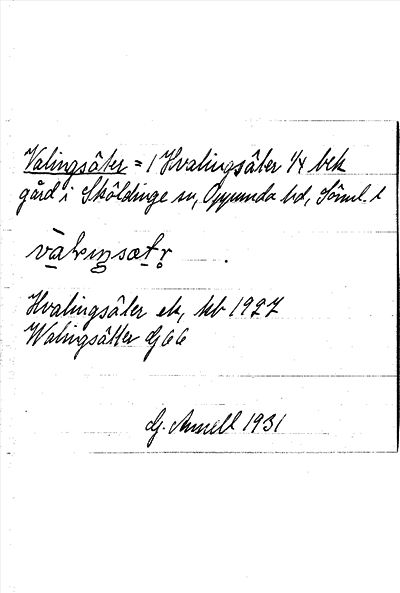 Valingsåter = / Hvalingsåter 1/4 bek
gård i Sköldinge sn, Oppunda hd, Söml. l
Hvalingsåter ek, kb 1927
Walingsätter Gf 66
G. Annell 1931